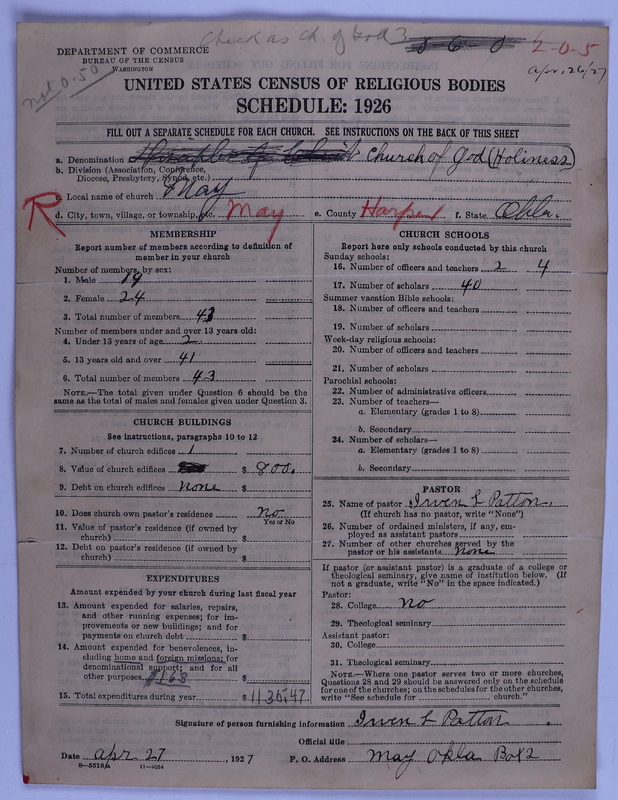 Check as Ch. of God 3
2-0-5
Apr, 26/27
not 0-50
DEPARTMENT OF COMMERCE
BUREAU OF THE CENSUS
WASHINGTON
UNITED STATES CENSUS OF RELIGIOUS BODIES
SCHEDULE: 1926
FILL OUT A SEPARATE SCHEDULE FOR EACH CHURCH. SEE INSTRUCTIONS ON THE BACK OF THIS SHEET
a. Denomination Church of God (Holiness)
b. Division (Association, Conference,
Diocese, Presbytery, Synod, etc.)
c. Local name of church May
R
d. City, town, village, or township, etc. May e. County Harper f. State Okla.
MEMBERSHIP
Report number of members according to definition of
member in your church
Number of members, by sex:
1. Male 19
2. Female 24
3. Total number of members 43
Number of members under and over 13 years old:
4. Under 13 years of age 2
5. 13 years old and over 41
6. Total number of members 43
NOTE.—The total given under Question 6 should be
the same as the total of males and females given under Question 3.
CHURCH BUILDINGS
See instructions, paragraphs 10 to 12
7. Number of church edifices 1
8. Value of church edifices $ 800.
9. Debt on church edifices none $
10. Does church own pastor's residence No
Yes or No
11. Value of pastor's residence (if owned by
church) $
12. Debt on pastor's residence (if owned by
church) $
EXPENDITURES
Amount expended by your church during last fiscal year
13. Amount expended for salaries, repairs,
and other running expenses; for im-
provements or new buildings; and for
payments on church debt $
14. Amount expended for benevolences, in-
cluding home and foreign missions; for
denominational support; and for all
other purposes $168 $
15. Total expenditures during year $ 1135.47
CHURCH SCHOOLS
Report here only schools conducted by this church
Sunday schools:
16. Number of officers and teachers 2 4
17. Number of scholars 40
Summer vacation Bible schools:
18. Number of officers and teachers
19. Number of scholars
Week-day religious schools:
20. Number of officers and teachers
21. Number of scholars
Parochial schools:
22. Number of administrative officers
23. Number of teachers—
a. Elementary (grades 1 to 8)
b. Secondary
24. Number of scholars—
a. Elementary (grades 1 to 8)
b. Secondary
PASTOR
25. Name of pastor Irven L Patton.
(If church has no pastor, write "None")
26. Number of ordained ministers, if any, em-
ployed as assistant pastors
27. Number of other churches served by the
pastor or his assistants none
If pastor (or assistant pastor) is a graduate of a college or
theological seminary, give name of institution below. (If
not a graduate, write "No" in the space indicated.)
Pastor:
28. College No
29. Theological seminary
Assistant pastor:
30. College
31. Theological seminary
NOTE.—Where one pastor serves two or more churches,
Questions 28 and 29 should be answered only on the schedule
for one of the churches; on the schedules for the other churches,
write "See schedule for church."
Signature of person furnishing information Irven L Patton
Official title
Date Apr. 27, 1927 P. O. Address May Okla Box 2
8-5518a 11-9054